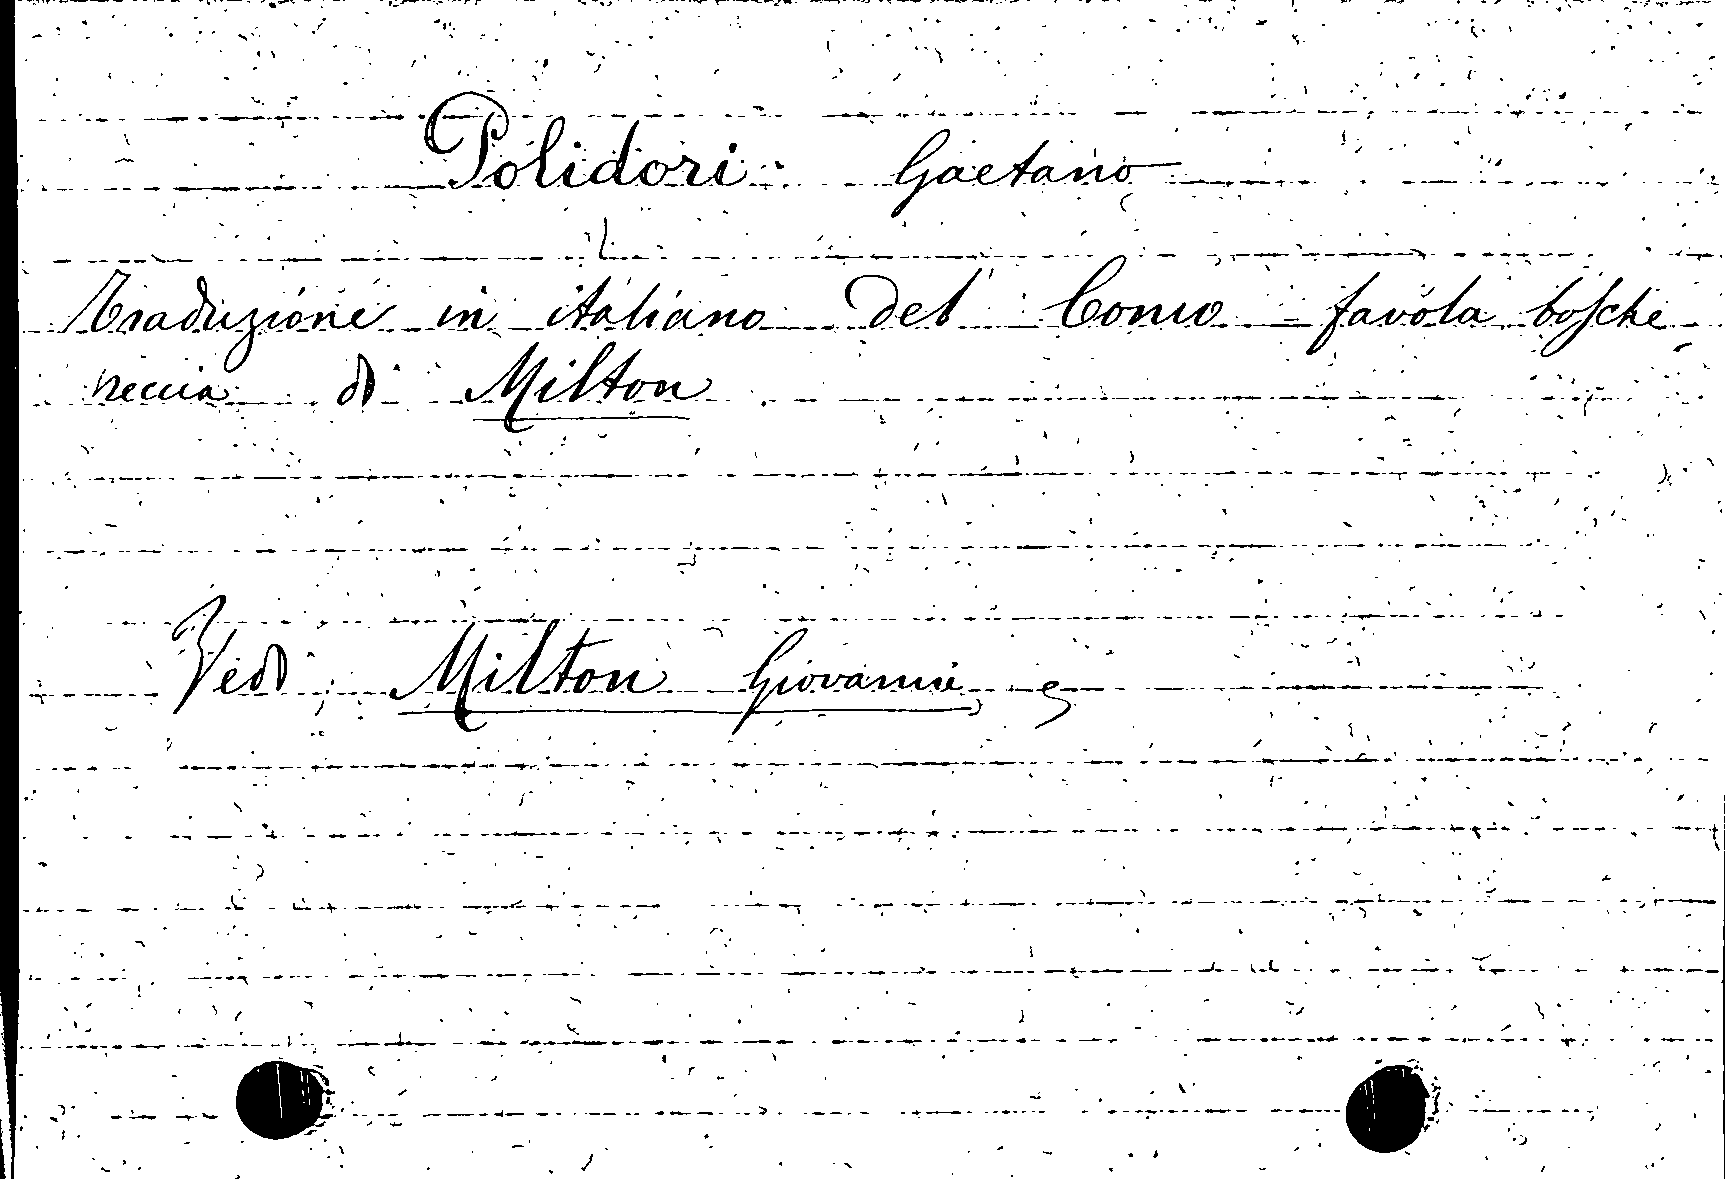 Polidori Gaetano
Traduzione in italiano del Como favola bosche
reccia di Milton
Vedi Milton Giovanni